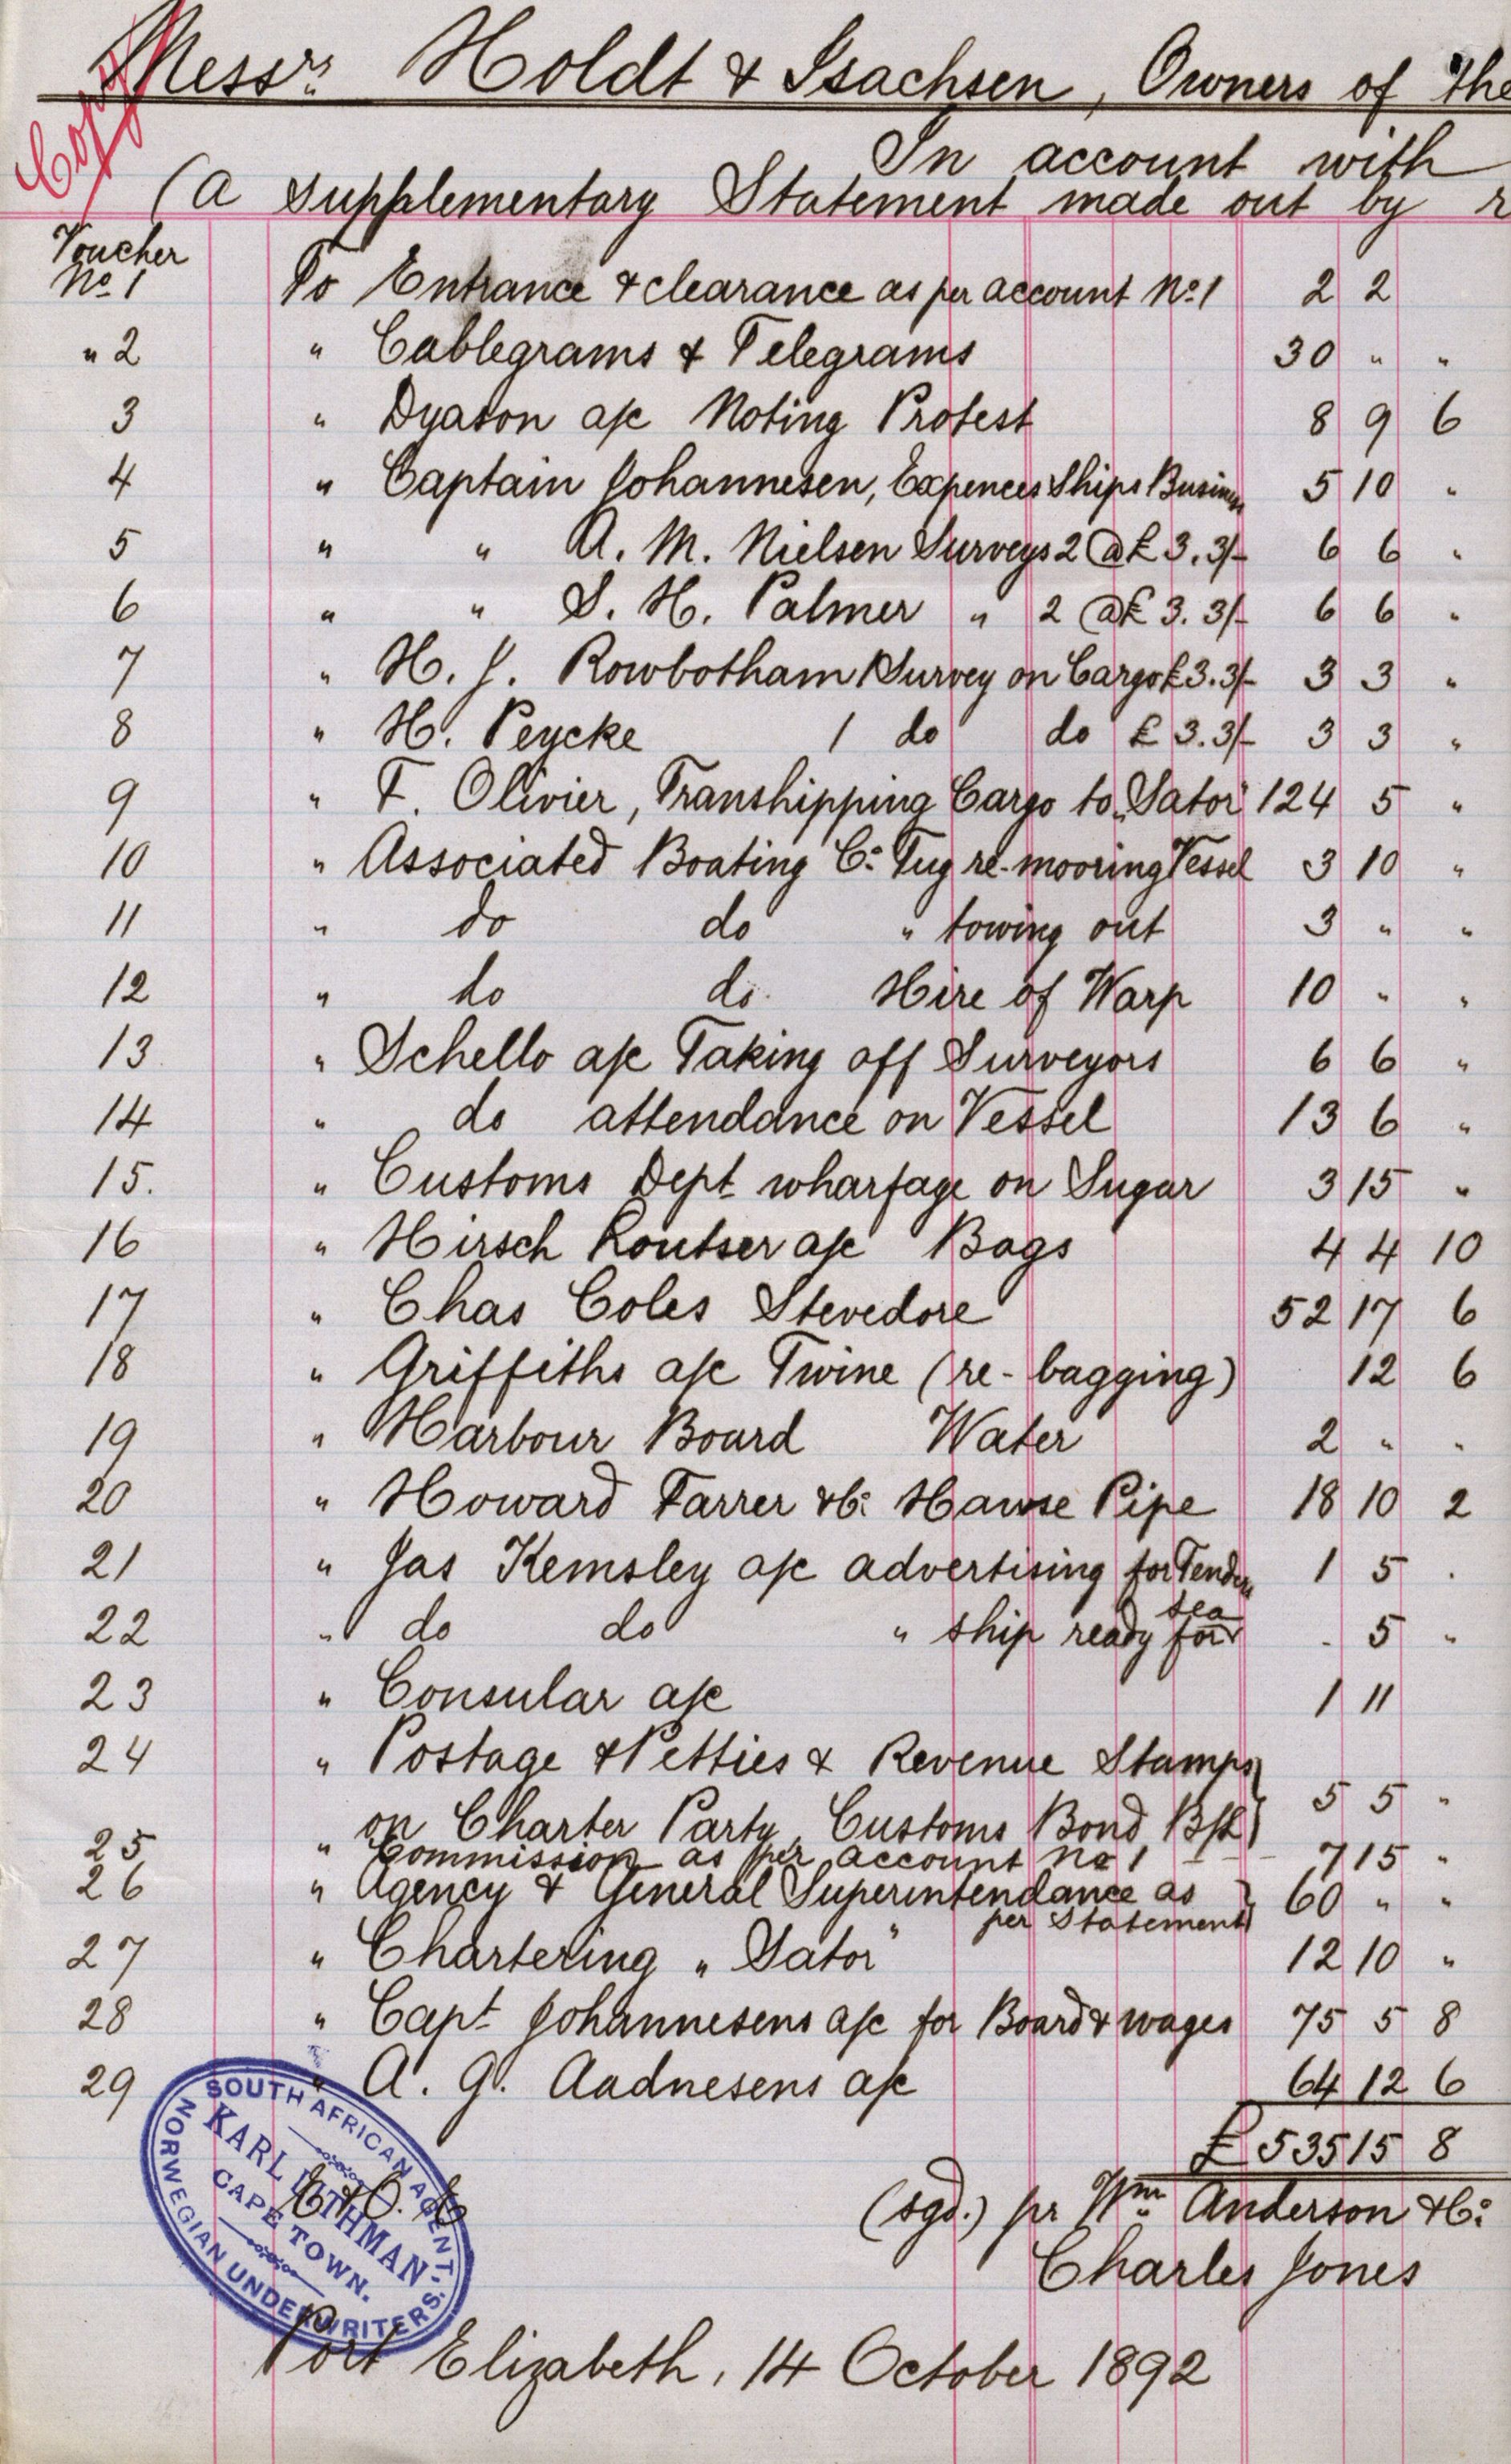 Copy
Messrs Holdt & Isachsen, Owners of the
In account with
(a Supplementary Statement made out by r
Voucher
No. 1 To Entrance & clearance as per account No. 1 2 2
" 2 " Cablegrams & Telegrams 30 " "
3 " Dyason a/c Noting Protest 8 9 6
4 " Captain Johannesen, Expences Ships Business 5 10 "
5 " " A. M. Nielsen Surveys 2 @ £ 3.3/- 6 6 "
6 " " S. H. Palmer " 2 @ £ 3.3/- 6 6 "
7 " H. J. Rowbotham 1 Survey on Cargo £ 3.3/- 3 3 "
8 " H. Peycke 1 do do £ 3.3/- 3 3 "
9 " F. Olivier, Transhipping Cargo to "Sator" 124 5 "
10 " Associated Boating Co. Tug re-mooring Vessel 3 10 "
11 " do do " towing out 3 " "
12 " do do. Hire of Warp 10 " "
13 " Schello a/c Taking off Surveyors 6 6 "
14 " do attendance on Vessel 13 6 "
15. " Customs Dept wharfage on Sugar 3 15 "
16 " Hirsch a/c Bags 4 4 10
17 " Chas Coles Stevedore 52 17 6
18 " Griffiths a/c Twine (re-bagging) 12 6
19 " Harbour Board Water 2 " "
20 " Howard Farrer & Co. Hawse Pipe 18 10 2
21 " Jas Kemsley a/c advertising for Tenders 1 5 .
22 " do do " ship ready for sea - 5 "
23 " Consular a/c 1 11
24 " Postage & Petties & Revenue Stamps
" on Charter Party, Customs Bond, B/L 5 5 "
25 " Commission as per account No 1 - - 7 15 "
26 " Agency & General Superintendance as
per Statement 60 " "
27 " Chartering "Sator" 12 10 "
28 " Capt Johannesens a/c for Board & wages 75 5 8
29 " A. G. Aadnesens a/c 64 12 6
£ 535 15 8
E & O. E
(sgd.) pr Wm. Anderson & Co:
Charles Jones
SOUTH AFRICAN AGENT,
KARL LITHMAN
CAPE TOWN.
NORWEGIAN UNDERWRITERS.
Port Elizabeth, 14 October 1892